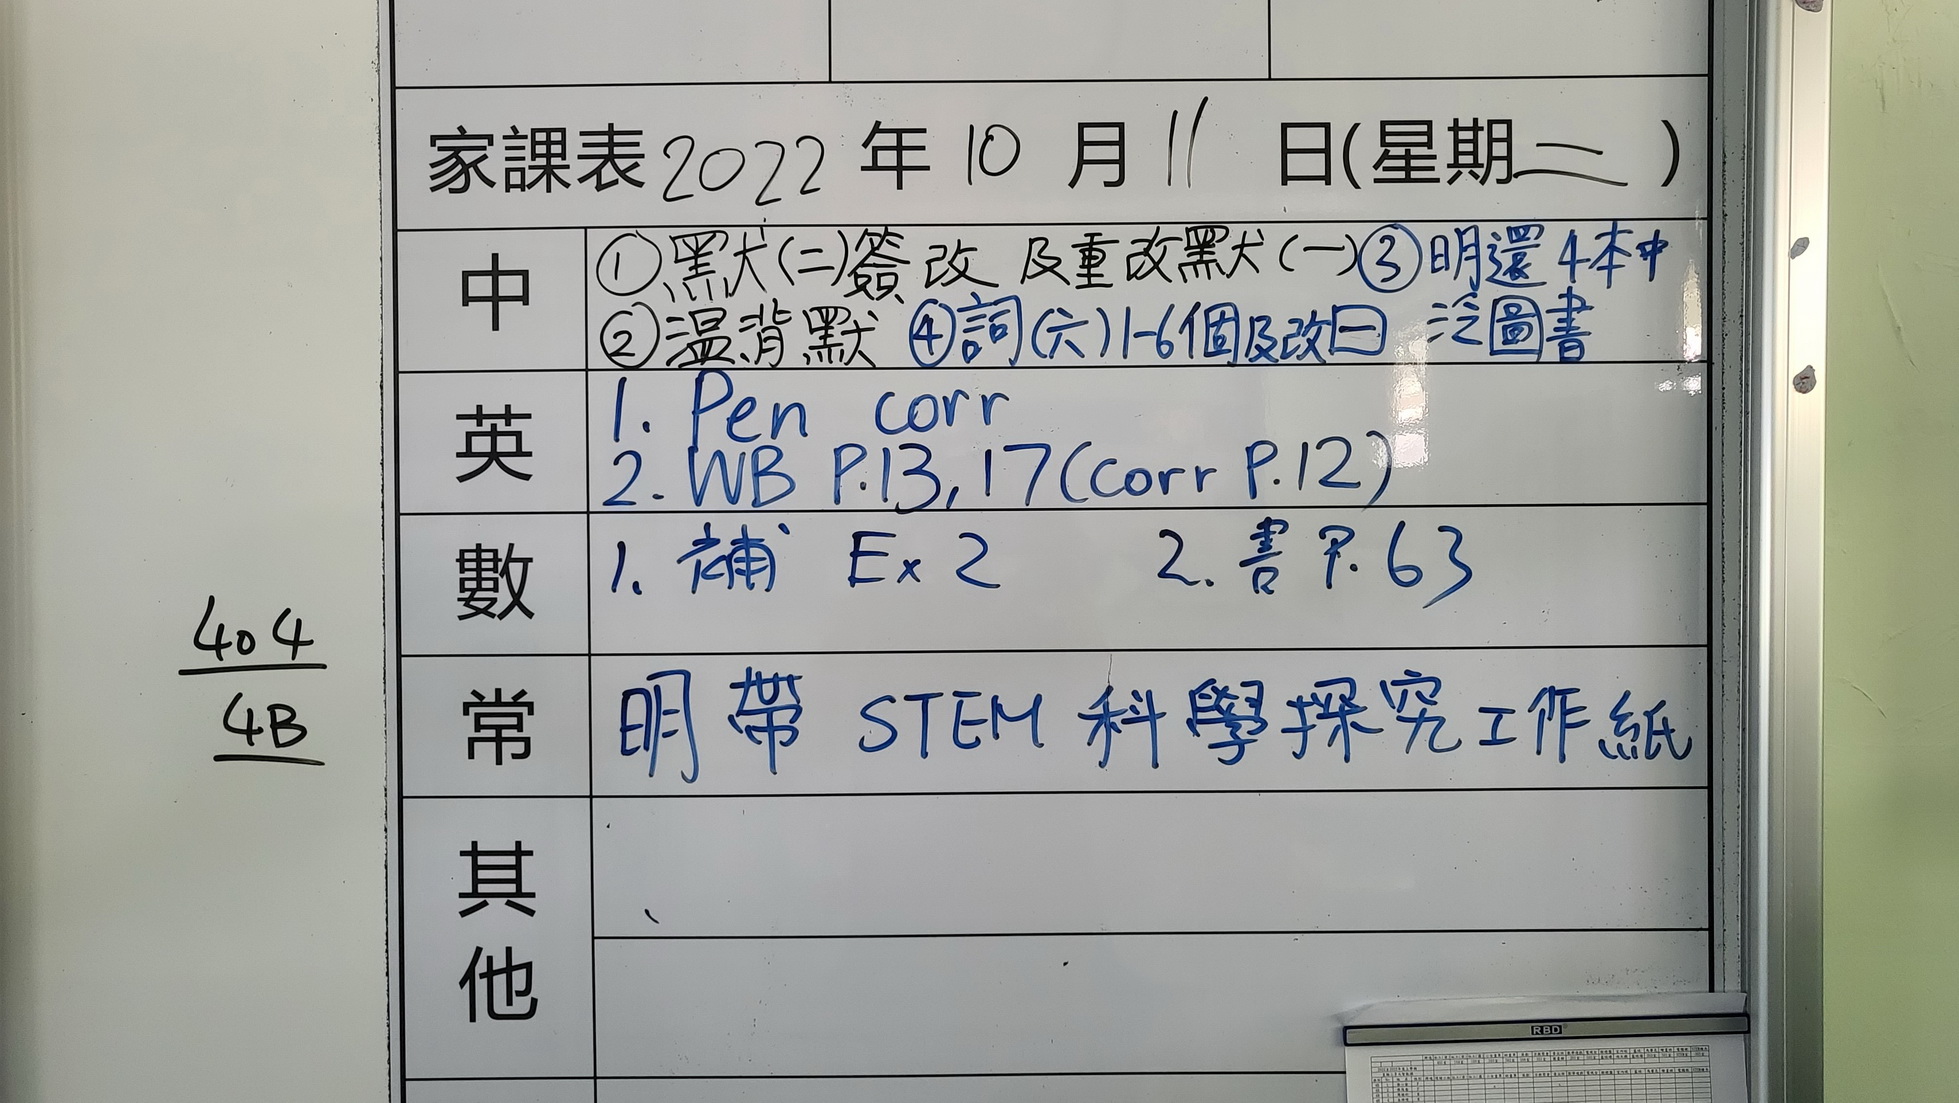 家課表 2022 年 10 月 11 日(星期二)
中
①默(二)簽改 及重改默(一) ③明還4本中
②温背默 ④詞(六)1-6個及改曰 泛圖書
英
1. Pen corr
2. WB P.13, 17 (corr P.12)
數
1. 補 Ex 2 2. 書 P. 63
404
4B
常
明帶 STEM 科學探究工作紙
其他
RBD